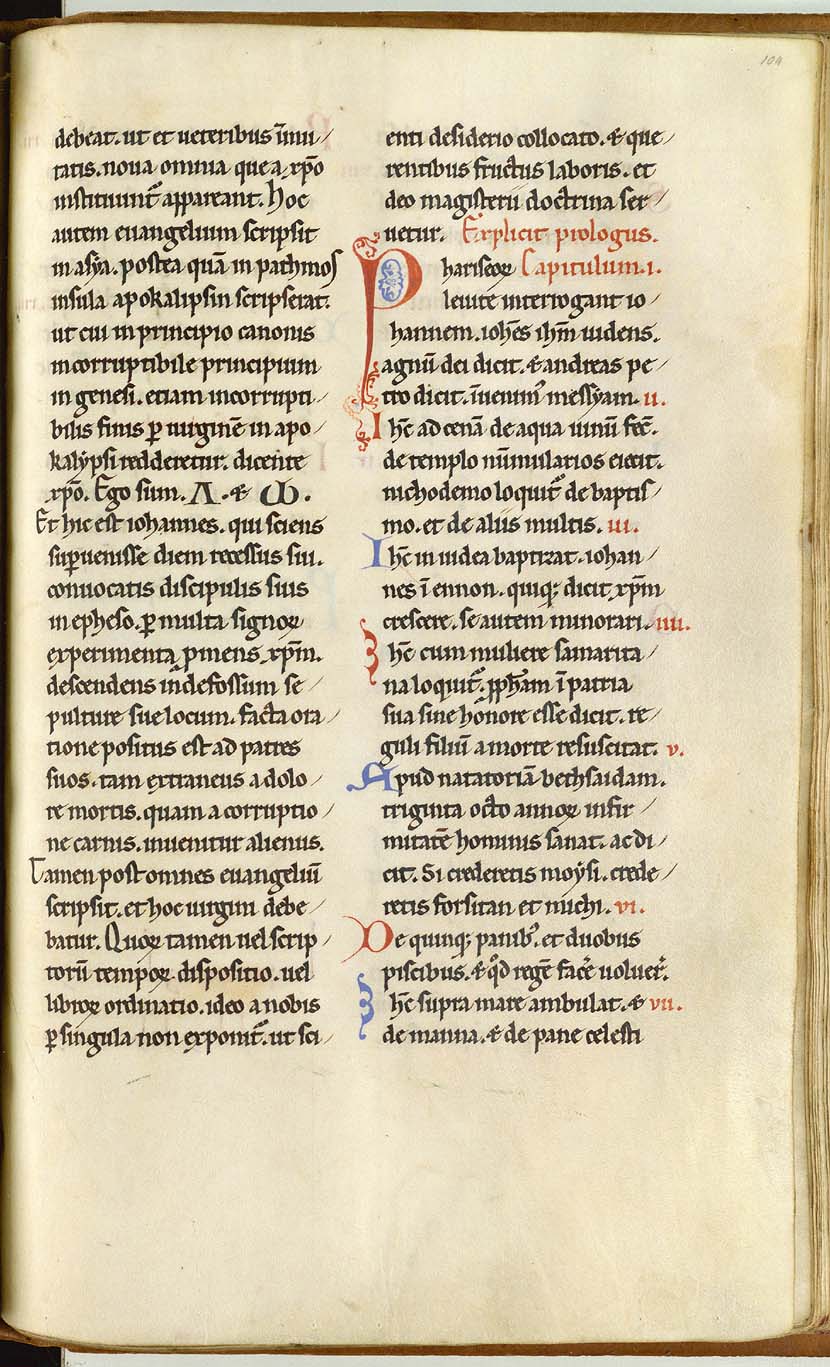 104
debeat. ut et ueteribus īmu/
tatis. noua omnia que a xp̄o
instituunt᷑ appareant. Hoc
autem euangelium scripsit
in asya. postea quā in pathmos
insula apokalipsin scripserat.
ut cui in principio canonis
incorruptibile principium
in genesi. etiam incorrupti/
bilis finis ꝑ uirginē in apo/
kalẏpsi redderetur. dicente
xp̄o. Ego sum. A. & ω.
Et hic est iohannes. qui sciens
suꝑuenisse diem recessus sui.
conuocatis discipulis suis
in epheso. ꝑ multa signoꝝ
experimenta ꝓmens xp̄m.
descendens in defossum se/
pulture sue locum. facta ora/
tione positus est ad patres
suos. tam extraneus a dolo/
re mortis. quam a corruptio/
ne carnis. inuenitur alienus.
Tamen post omnes euangeliū
scripsit. et hoc uirgini debe/
batur. Quoꝝ tamen uel scrip/
torū tempoꝝ dispositio. uel
libroꝝ ordinatio. ideo a nobis
ꝑ singula non exponit᷑. ut sci/
enti desiderio collocato. & que/
rentibus fructus laboris. et
deo magisterii doctrina ser/
uetur. Explicit prologus.
Phariseoꝝ Capitulum .i.
leuite interrogant io/
hannem. ioh̄es ih̄m uidens.
agnū dei dicit. & andreas pe/
tro dicit. īuenim᷒ messẏam. ii.
Ih̄c ad cenā de aqua uinū fec̄.
de templo nūmularios eiecit.
nichodemo loquit᷑ de baptis/
mo. et de aliis multis. iii.
Ih̄c in iudea baptizat. iohan/
nes ī ennon. quiq; dicit xp̄m
crescere. se autem minorari. iiii.
Ih̄c cum muliere samarita/
na loquit᷑. ꝓph̄am ī patria
sua sine honore esse dicit. re/
guli filiū a morte resuscitat. v.
Apud natatoriā bethsaidam.
triginta octo annoꝝ infir/
mitatē hominis sanat. ac di/
cit. Si crederetis moẏsi. crede/
retis forsitan et michi. vi.
De quinq; panib᷒. et duobus
piscibus. & qͦd regē facē uoluer̄.
Ih̄c supra mare ambulat. & vii.
de manna. & de pane celesti